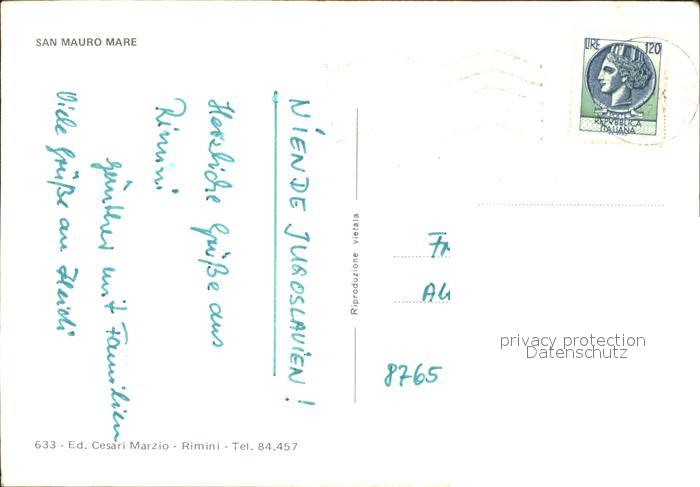 SAN MAURO MARE
LIRE 120
REPVBBLICA
ITALIANA
NIENDE JUGOSLAVIEN!
Herzliche Grüße aus
Rimini
Günther mit Familien
Viele Grüße an Heidi
Riproduzione vietata
FR
AU
8765
privacy protection
Datenschutz
633 - Ed. Cesari Marzio - Rimini - Tel. 84.457